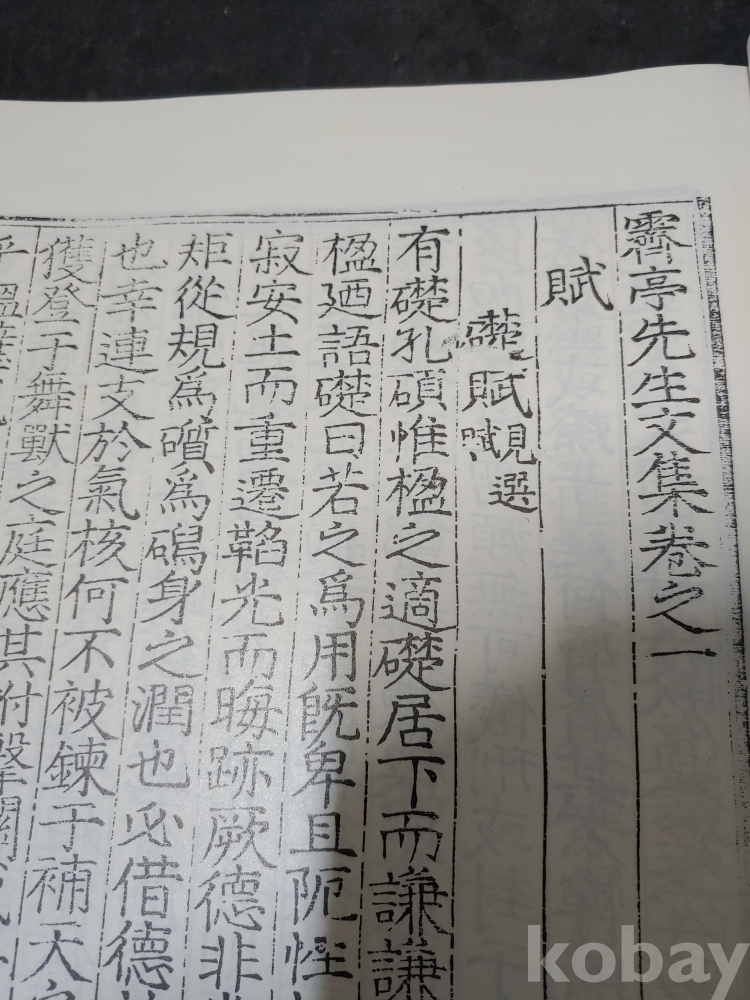 霽亭先生文集卷之一
賦
礎賦 賦見選
有礎孔碩惟楹之適礎居下而謙謙
楹廼語礎曰若之為用旣卑且阨性
寂安土而重遷韜光而晦跡厥德非
矩從規爲礩爲磶身之潤也必借德
也幸連支於氣核何不被鍊于補天
獲登于舞獸之庭應其拊擊關
乎
kobay